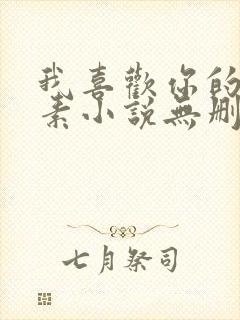 我喜歡你的
素小說無刪
七月祭司